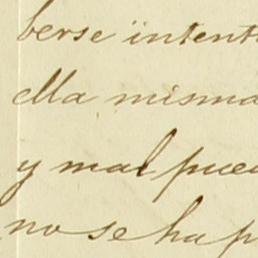 berse intent
ella misma
y mal pue
no se ha p